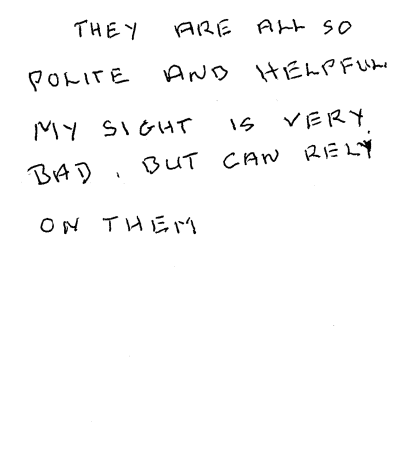 THEY ARE ALL SO
POLITE AND HELPFUL
MY SIGHT IS VERY
BAD, BUT CAN RELY
ON THEM